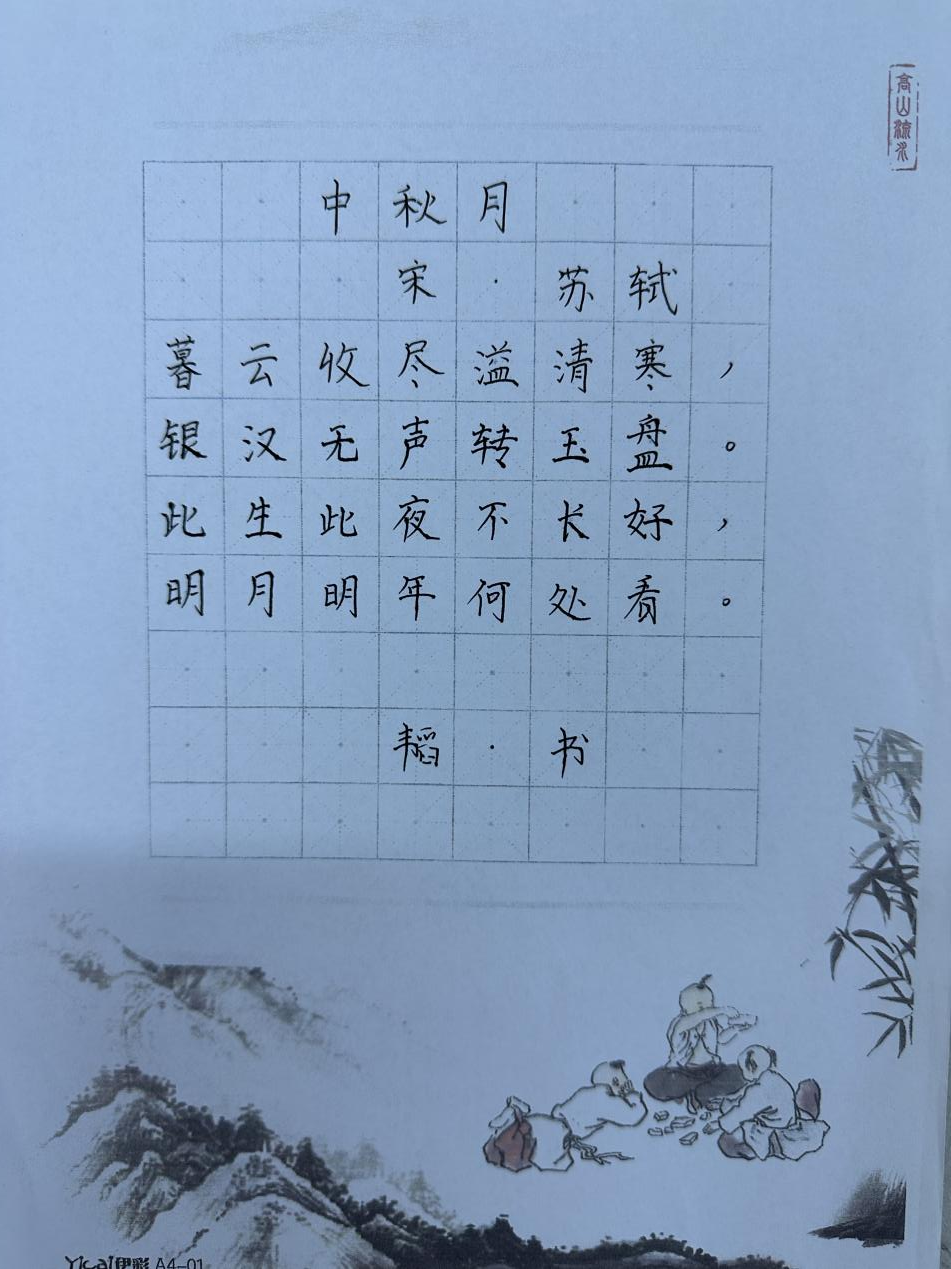 高山流水
中秋月
宋·苏轼
暮云收尽溢清寒，
银汉无声转玉盘。
此生此夜不长好，
明月明年何处看。
韬·书
Yical伊彩 A4-01